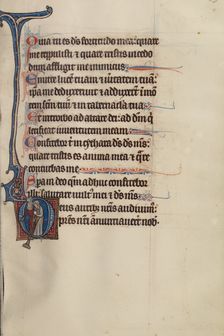 Quia tu es ds fortitudo mea: quare
me repulisti & quare tristis incedo
dum affligit me inimicus.
Emitte lucē tuam & ueritatem tuā:
ipsa me deduxerunt & adduxerunt ī mō
tem scm̄ tuū & in tabernacla tua.
Et introibo ad altare dei: ad dm̄ q
letificat iuuentutem meam.
Confitebor t̄ in cythara ds ds ms:
quare tristis es anima mea & qre
conturbas me
Spera in deo qm̄ adhuc confitebor
illi: salutare uultꝰ mei & ds ms.
Deus auribꝫ nr̄is audiuimꝰ:
pr̄es nr̄i annuntiauerūt nob̄.